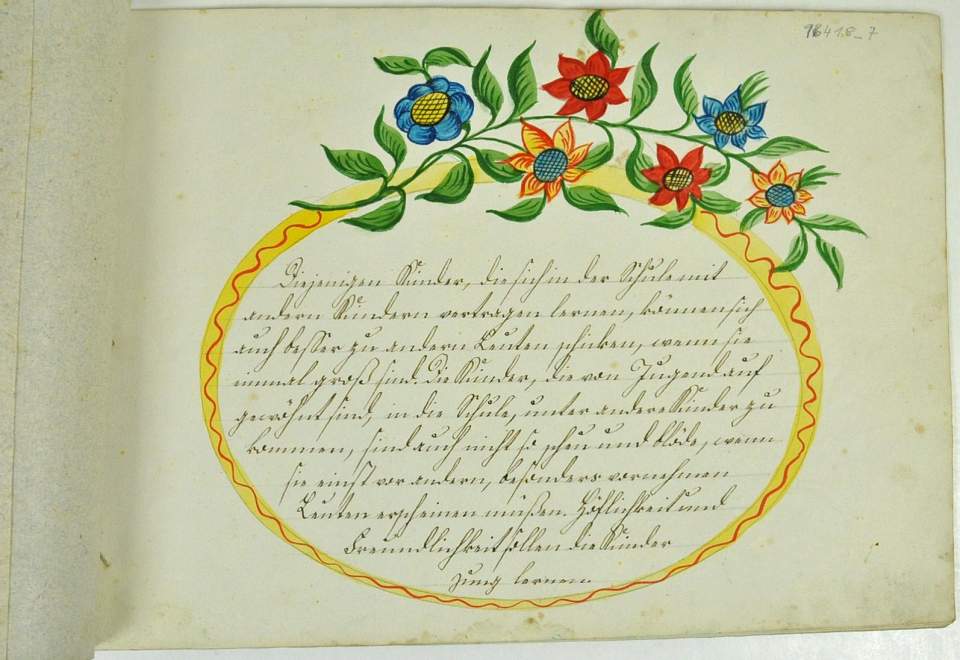 16418_7
Diejenigen Kinder, die sich in der Schule mit
andern Kindern vertragen lernen, können sich
auch besser zu andern Leuten schicken, wenn sie
einmal groß sind. Die Kinder, die von Jugend auf
gewöhnt sind, in die Schule, unter andere Kinder zu
kommen, sind auch nicht so scheu und blöde, wenn
sie einst vor andern, besonders vornehmen
Leuten erscheinen müßen. Höflichkeit und
Freundlichkeit sollen die Kinder
jung lernen.